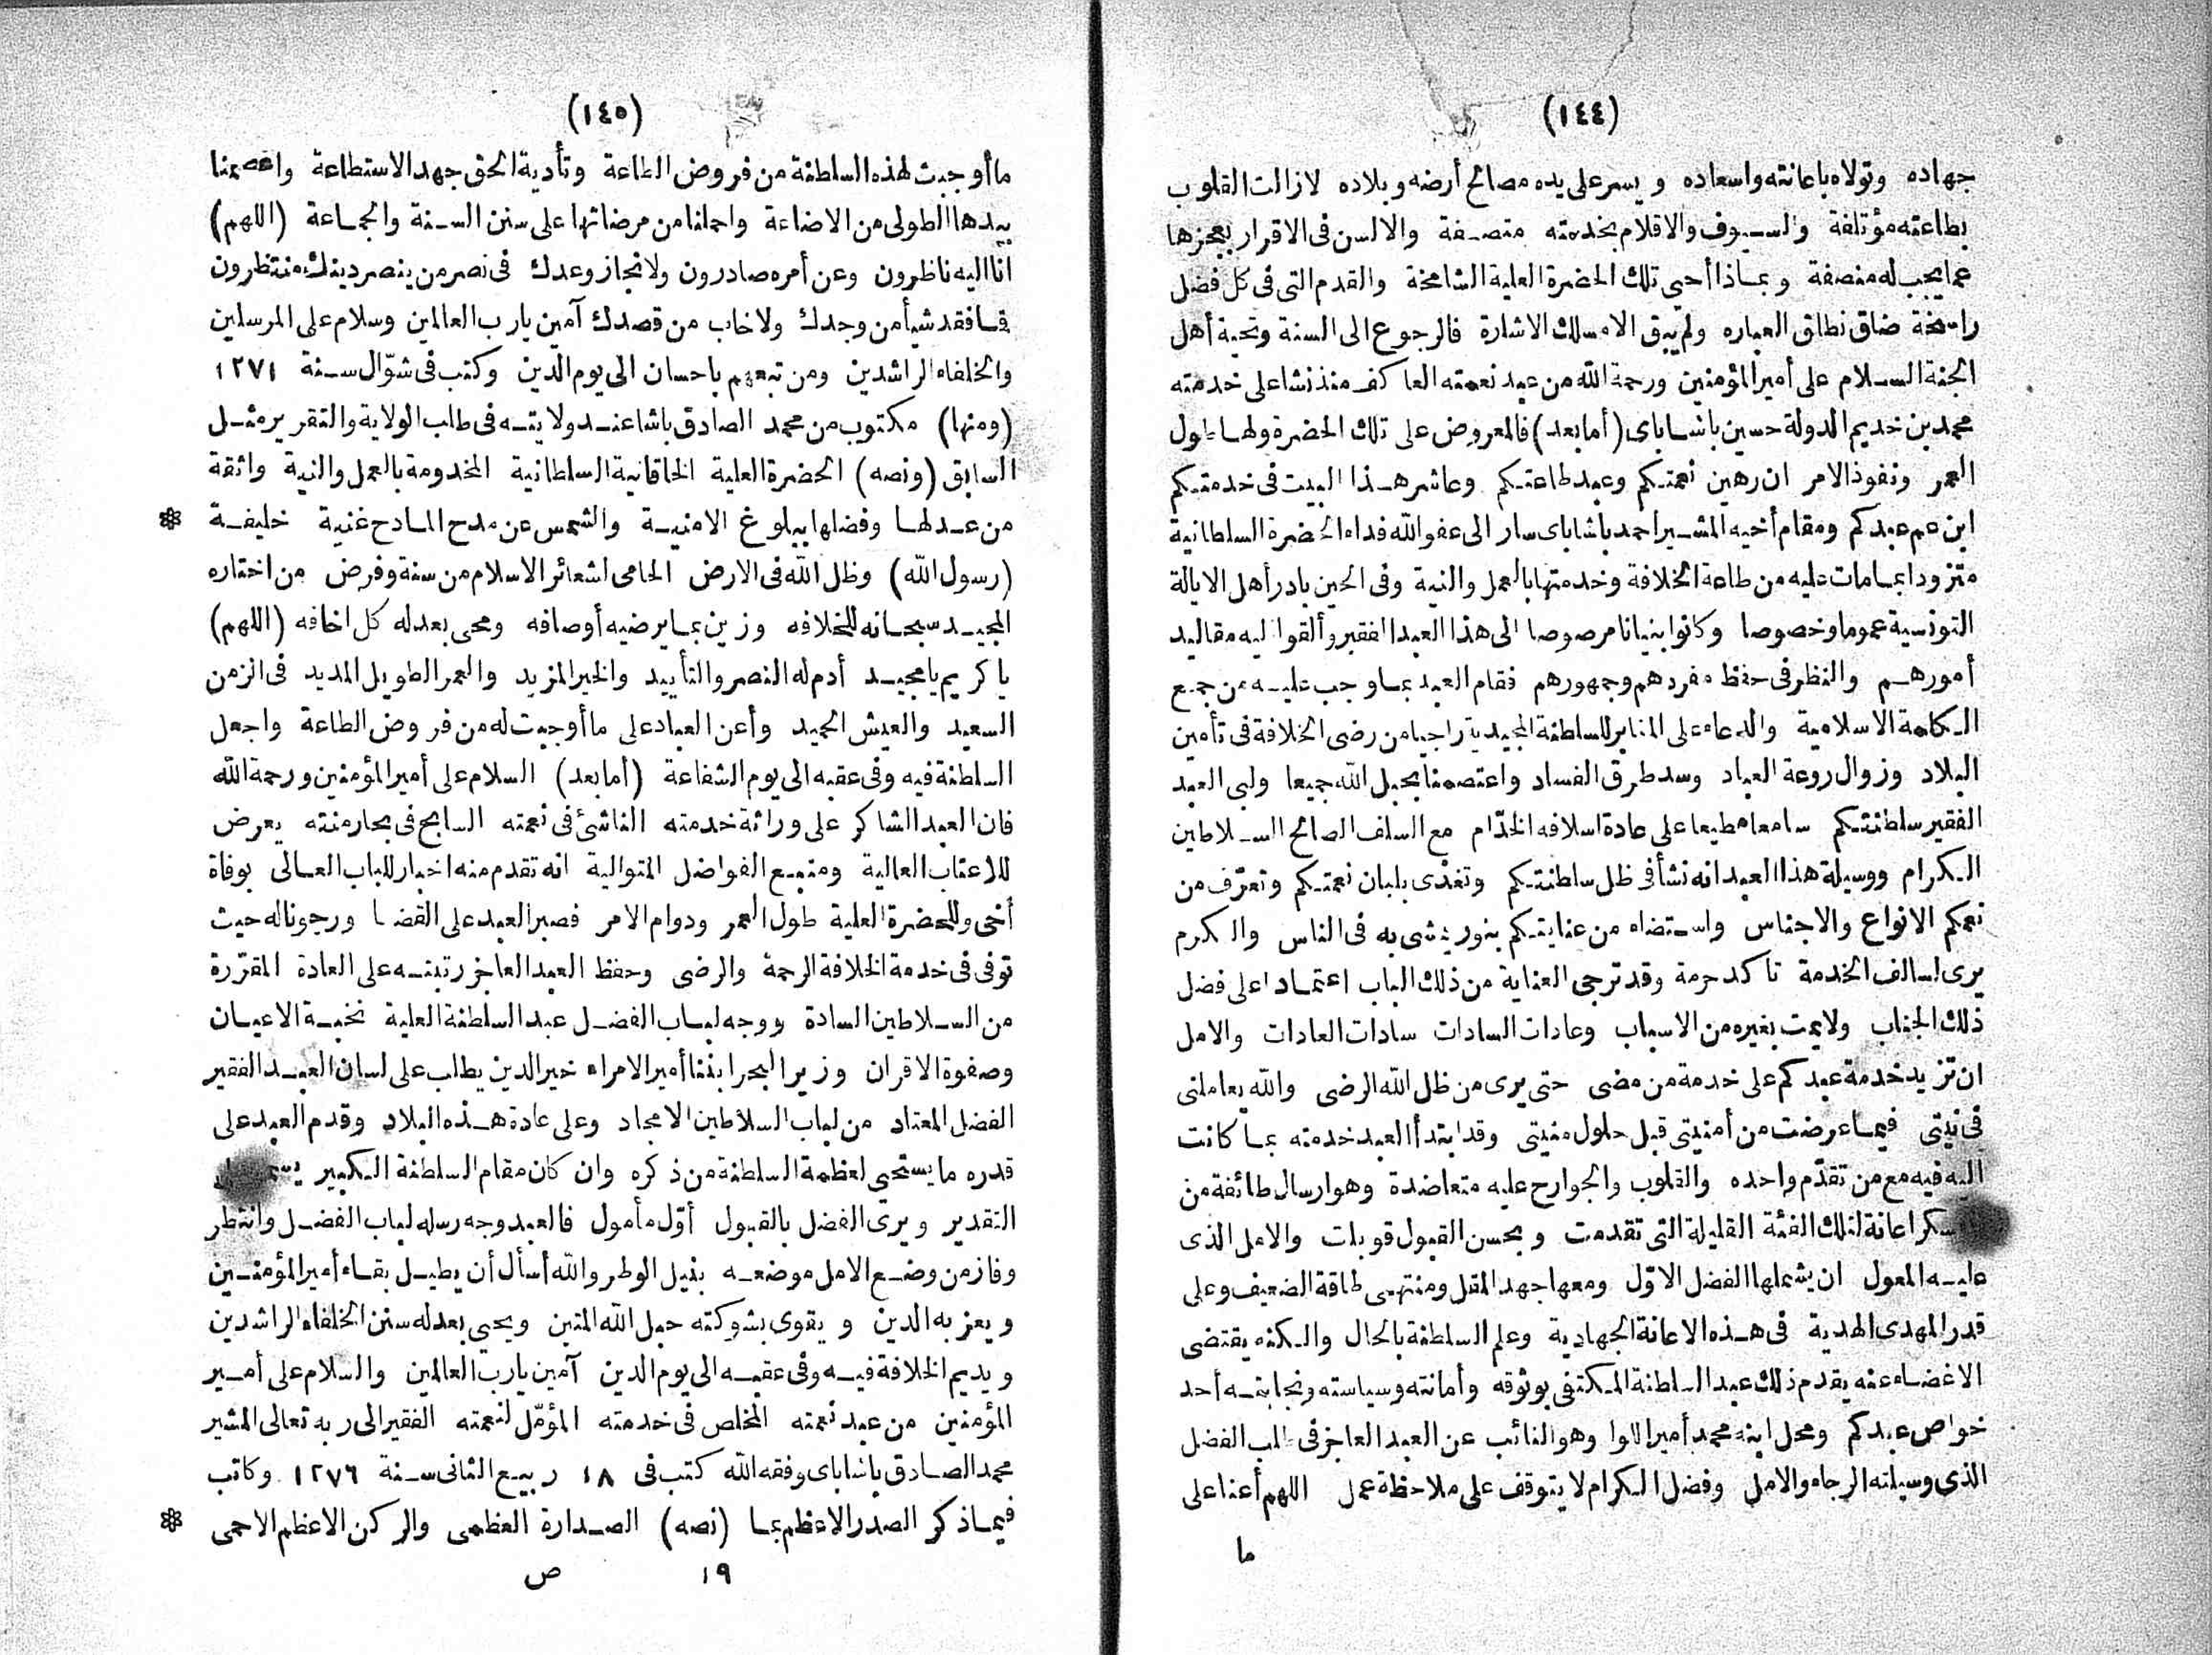 (١٤٤)
جهاده وتولاه باعانته واسعاده ويسر على يده مصالح أرضه وبلاده لازالت القلوب
بطاعته مؤتلفة والسيوف والاقلام بخدمته متصفة والالسن فى الاقرار بعجزها
عما يجب له منصفة وبماذا أحيى تلك الحضرة العلية الشامخة والقدم التى فى كل فضل
راسخة ضاق نطاق العباره ولم يبق الامسلك الاشارة فالرجوع الى السنة وتحية أهل
الجنة السلام على أمير المؤمنين ورحمة الله من عبد نعمته العاكف منذ نشا على خدمته
محمد بن خديم الدولة حسين باشا باى (أما بعد) فالمعروض على تلك الحضرة ولها طول
العمر ونفوذ الامر ان رهين نعمتكم وعبد طاعتكم وعاشر هذا البيت فى خدمتكم
ابن عم عبدكم ومقام أخيه المشير احمد باشا باى سار الى عفو الله فداء الحضرة السلطانية
متزودا بما مات عليه من طاعة الخلافة وخدمتها بالعمل والنية وفى الحين بادر أهل الايالة
التونسية عموما وخصوصا وكانوا بنيانا مرصوصا الى هذا العبد الفقير وألقوا اليه مقاليد
أمورهم والنظر فى حفظ مفردهم وجمهورهم فقام العبد بما وجب عليه من جمع
الكلمة الاسلامية والدعاء على المنابر للسلطنة المجيدية راجيا من رضى الخلافة فى تأمين
البلاد وزوال روعة العباد وسد طرق الفساد واعتصمنا بحبل الله جميعا ولبى العبد
الفقير سلطنتكم سامعا مطيعا على عادة اسلافه الخدّام مع السلف الصالح السلاطين
الكرام ووسيلة هذا العبد انه نشأ فى ظل سلطنتكم وتغذى بلبان نعمتكم وتعرّف من
نعمكم الانواع والاجناس واستضاء من عنايتكم بنور يمشى به فى الناس والكرم
يرى لسالف الخدمة تاكد حرمة وقد ترجى العناية من ذلك الباب اعتمادا على فضل
ذلك الجناب ولا يمت بغيره من الاسباب وعادات السادات سادات العادات والامل
ان تزيد خدمة عبدكم على خدمة من مضى حتى يرى من ظل الله الرضى والله يعاملنى
فى نيتى فيما عرضت من أمنيتى قبل حلول منيتى وقد ابتدأ العبد خدمته بما كانت
اليه فيه مع من تقدّم واحده والقلوب والجوارح عليه متعاضدة وهو ارسال طائفة من
اعانة لتلك الفئة القليلة التى تقدمت وبحسن القبول قوبلت والامل الذى
عليه المعول ان يشملها الفضل الاوّل ومعها جهد المقل ومنتهى طاقة الضعيف وعلى
قدر المهدى الهدية فى هذه الاعانة الجهادية وعلم السلطنة بالحال والكنه يقتضى
الاغضاء عنه يقدم ذلك عبد السلطنة المكتفى بوثوقه وأمانته وسياسته ونجابته أحد
خواص عبدكم ومحل ابنه محمد أمير اللوا وهو النائب عن العبد العاجز فى طلب الفضل
الذى وسيلته الرجاء والامل وفضل الكرام لا يتوقف على ملاحظة عمل اللهم أعنا على
ما
(١٤٥)
ما أوجبت لهذه السلطنة من فروض الطاعة وتأدية الحق جهد الاستطاعة واعصمنا
بيدها الطولى من الاضاعة واحملنا من مرضاتها على سنن السنة والجماعة (اللهم)
انا اليه ناظرون وعن أمره صادرون ولانجاز وعدك فى نصر من ينصر دينك منتظرون
فما فقد شيأ من وجدك ولا خاب من قصدك آمين يارب العالمين وسلام على المرسلين
والخلفاء الراشدين ومن تبعهم باحسان الى يوم الدين وكتب فى شوّال سنة ١٢٧١
(ومنها) مكتوب من محمد الصادق باشا عند ولايته فى طلب الولاية والتقرير مثل
السابق (ونصه) الحضرة العلية الخاقانية السلطانية المخدومة بالعمل والنية واثقة
من عدلها وفضلها ببلوغ الامنية والشمس عن مدح المادح غنية خليفة *
(رسول الله) وظل الله فى الارض الحامى لشعائر الاسلام من سنة وفرض من اختاره
المجيد سبحانه للخلافه وزين بما يرضيه أوصافه ومحى بعدله كل اخافه (اللهم)
ياكريم يامجيد أدم له النصر والتأييد والخير المزيد والعمر الطويل المديد فى الزمن
السعيد والعيش الحميد وأعن العباد على ما أوجبت له من فروض الطاعة واجعل
السلطنة فيه وفى عقبه الى يوم الشفاعة (أما بعد) السلام على أمير المؤمنين ورحمة الله
فان العبد الشاكر على وراثة خدمته الناشئ فى نعمته السابح فى بحار منته يعرض
للاعتاب العالية ومنبع الفواضل المتوالية انه تقدم منه اخبار للباب العالى بوفاة
أخى وللحضرة العلية طول العمر ودوام الامر فصبر العبد على القضا ورجونا له حيث
توفى فى خدمة الخلافة الرحمة والرضى وحفظ العبد العاجز رتبته على العادة المقرّرة
من السلاطين السادة ووجه لباب الفضل عبد السلطنة العلية نخبة الاعيان
وصفوة الاقران وزير البحر ابننا أمير الامراء خير الدين يطلب على لسان العبد الفقير
الفضل المعتاد من لباب السلاطين الامجاد وعلى عادة هذه البلاد وقدم العبد على
قدره ما يستحى لعظمة السلطنة من ذكره وان كان مقام السلطنة الكبير
التقدير ويرى الفضل بالقبول أوّل مأمول فالعبد وجه رسله لباب الفضل وانتظر
وفاز من وضع الامل موضعه بنيل الوطر والله أسأل أن يطيل بقاء أمير المؤمنين
ويعز به الدين ويقوى بشوكته حبل الله المتين ويحيى بعدله سنن الخلفاء الراشدين
ويديم الخلافة فيه وفى عقبه الى يوم الدين آمين يارب العالمين والسلام على أمير
المؤمنين من عبد نعمته المخلص فى خدمته المؤمّل لنعمته الفقير الى ربه تعالى المشير
محمد الصادق باشا باى وفقه الله كتب فى ١٨ ربيع الثانى سنة ١٢٧٦ وكاتب
فيما ذكر الصدر الاعظم بما (نصه) الصدارة العظمى والركن الاعظم الاحمى *
١٩ ص